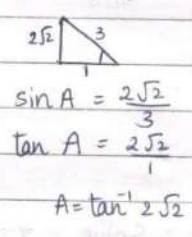 2√2 3
1
sin A = 2√2/3
tan A = 2√2/1
A = tan⁻¹ 2√2